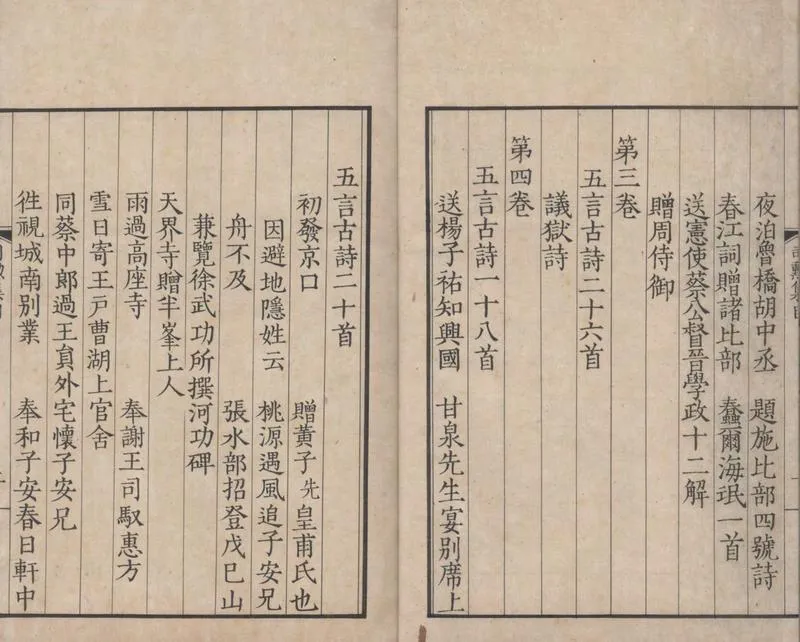 夜泊魯橋胡中丞　題施比部四號詩
春江詞贈諸比部　蠢爾海珉一首
送憲使蔡公督晉學政十二解
贈周侍御
第三卷
五言古詩二十六首
議獄詩
第四卷
五言古詩一十八首
送楊子祐知興國　甘泉先生宴別席上
五言古詩二十首
初發京口　贈黃子先皇甫氏也
因避地隱姓云　桃源遇風追子安兄
舟不及　張水部招登戊巳山
蒹覽徐武功所撰河功碑
天界寺贈半峯上人
雨過高座寺　奉謝王司馭惠方
雪日寄王戶曹湖上官舍
同蔡中郎過王員外宅懷子安兄
徃視城南別業　奉和子安春日軒中